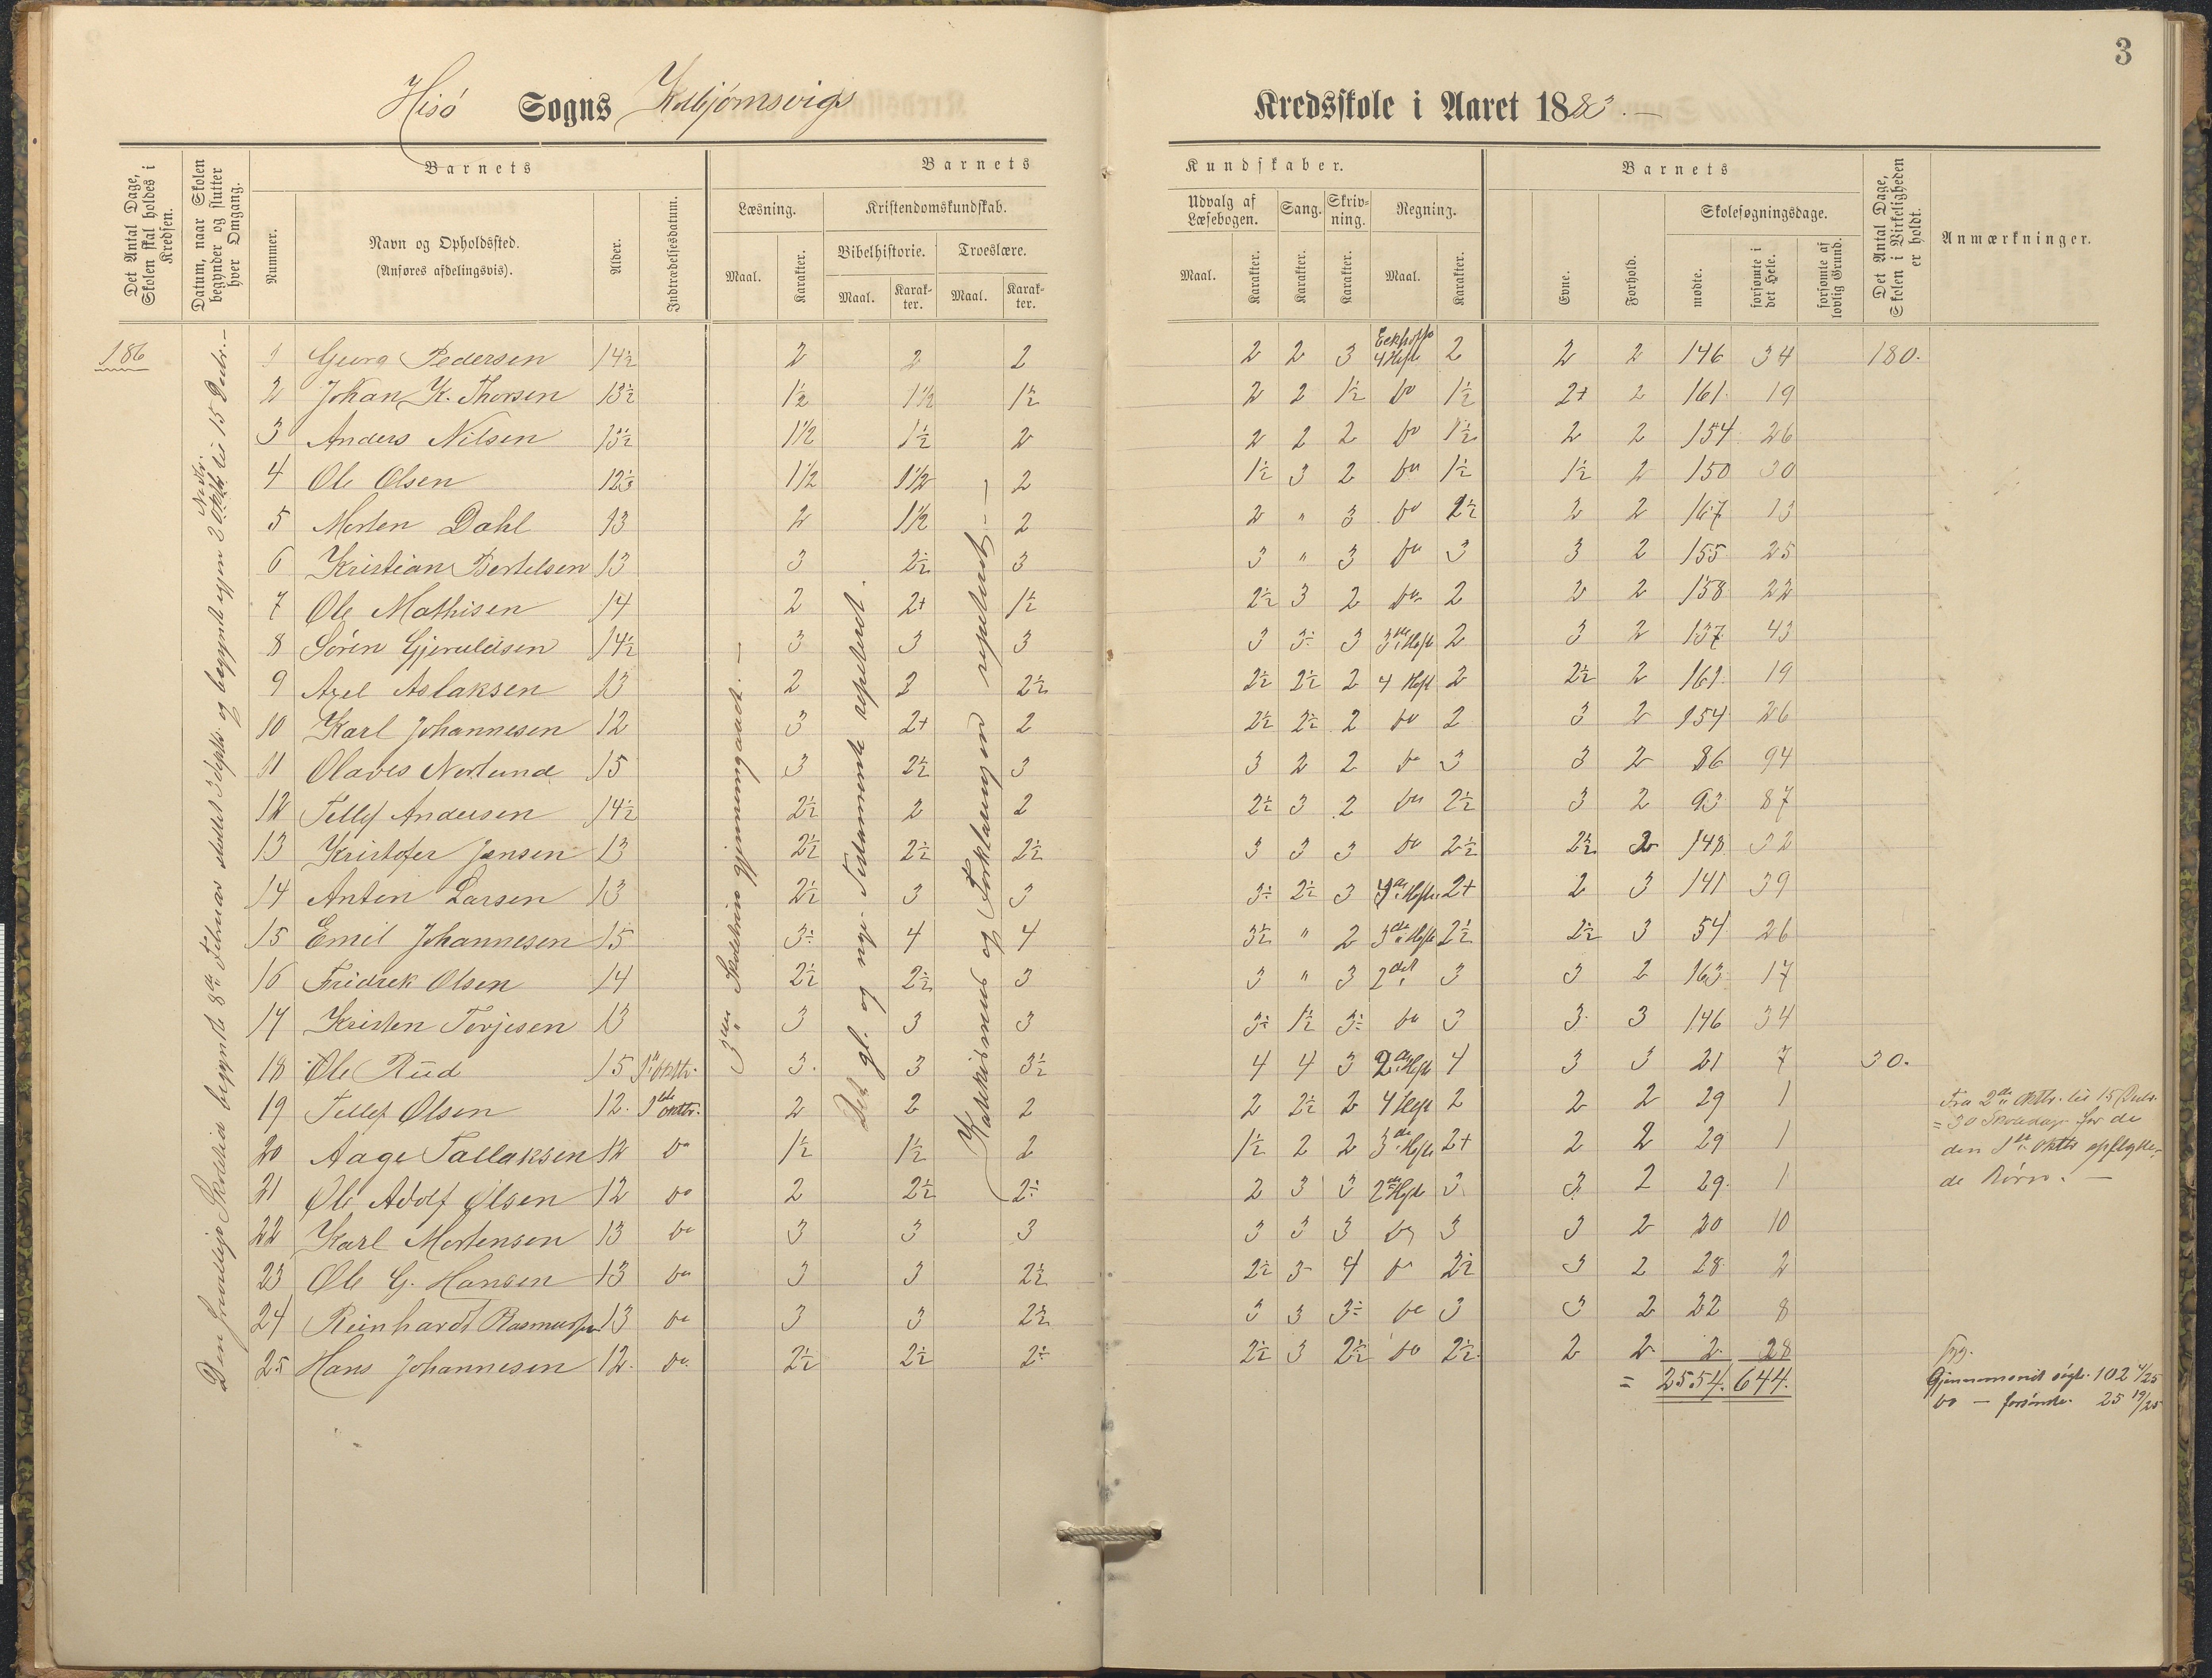 3
Hisö Sogns Kolbjørnsvigs Kredsskole i Aaret 1883.
Det Antal Dage, Skolen skal holdes i Kredsen.
Datum, naar Skolen begynder og slutter hver Omgang.
Barnets
Nummer.
Navn og Opholdssted.
(Anføres afdelingsvis).
Alder.
Indtrædelsesdatum.
Barnets Kundskaber.
Læsning.
Maal.
Karakter.
Kristendomskundskab.
Bibelhistorie.
Maal.
Karakter.
Troeslære.
Maal.
Karakter.
Udvalg af Læsebogen.
Maal.
Karakter.
Sang.
Karakter.
Skrivning.
Karakter.
Regning.
Maal.
Karakter.
Barnets
Evne.
Forhold.
Skolesøgningsdage.
mødte.
forsømte i det Hele.
forsømte af lovlig Grund.
Det Antal Dage, Skolen i Virkeligheden er holdt.
Anmærkninger.
186
begyndte 8de Februar sluttet og begyndte igjen 2 til 15 Decbr.
3die Skoletrin gjennemgaaet.
Det gl. og nye Testamente repeteret.
Katekismus og Forklaringen repeteret
1 Georg Pedersen 14½ 2 2 2 2 2 3 4 Hefte 2 2 2 146 34 180.
2 Johan K. Thorsen 13½ 1½ 1½ 1½ 2 2 1½ do 1½ 2+ 2 161 19
3 Anders Nilsen 13½ 1½ 1½ 2 2 2 2 do 1½ 2 2 154 26
4 Ole Olsen 12½ 1½ 1½ 2 1½ 3 2 do 1½ 1½ 2 150 30
5 Morten Dahl 13 2 1½ 2 2 " 3 do 2½ 2 2 167 13
6 Kristian Bertelsen 13 3 2½ 3 3 " 3 do 3 3 2 155 25
7 Ole Mathisen 14 2 2+ 1½ 2½ 3 2 do 2 2 2 158 22
8 Sören Gjeruldsen 14½ 3 3 3 3 3÷ 3 3de Hefte 2 3 2 137 43
9 Axel Aslaksen 13 2 2 2½ 2½ 2½ 2 4 Hefte 2 2½ 2 161 19
10 Karl Johannesen 12 3 2+ 2 2½ 2½ 2 do 2 3 2 154 26
11 Olaves Norlund 15 3 2½ 3 3 2 2 do 3 3 2 86 94
12 Tellef Andersen 14½ 2½ 2 2 2½ 3 2 do 2½ 3 2 93 87
13 Kristofer Jensen 13 2½ 2½ 2½ 3 3 3 do 2½ 2½ 2 148 32
14 Anton Larsen 13 2½ 3 3 3÷ 2½ 3 4de Hefte 2+ 2 3 141 39
15 Emil Johannesen 15 3÷ 4 4 3½ " 2 3de Hefte 2½ 2½ 3 54 26
16 Fridrek Olsen 14 2½ 2½ 3 3 " 3 2det 3 3 2 163 17
17 Kristen Terjesen 13 3 3 3 3÷ 1½ 3÷ do 3 3 3 146 34
18 Ole Rud 15 1ste Oktbr. 3 3 3½ 4 4 3 2de Hefte 4 3 3 21 7 30.
19 Tellef Olsen 12 1ste Oktbr. 2 2 2 2 2½ 2 4 Hefte 2 2 2 29 1
20 Aage Tallaksen 12 do 1½ 1½ 2 1½ 2 2 3de Hefte 2+ 2 2 29 1
21 Ole Adolf Olsen 12 do 2 2½ 2÷ 2 3 3 2de Hefte 3 3 2 29 1
22 Karl Mortensen 13 do 3 3 3 3 3 3 do 3 3 2 20 10
23 Ole G. Hansen 13 do 3 3 2½ 2½ 3 4 do 2½ 3 2 28 2
24 Reinhardt Rasmussen 13 do 3 3 2½ 3 3 3÷ do 3 3 2 22 8
25 Hans Johannesen 12 do 2½ 2½ 2÷ 2½ 3 2½ do 2½ 2 2 2 28
= 2554. 644.
Fra 2de Oktbr. til 15 Decbr.
= 30 Skoledage for de
den 1ste Oktbr opflytte-
de Børn.
Gjennemsnit søgte 102 4/25
do — forsømte. 25 19/25